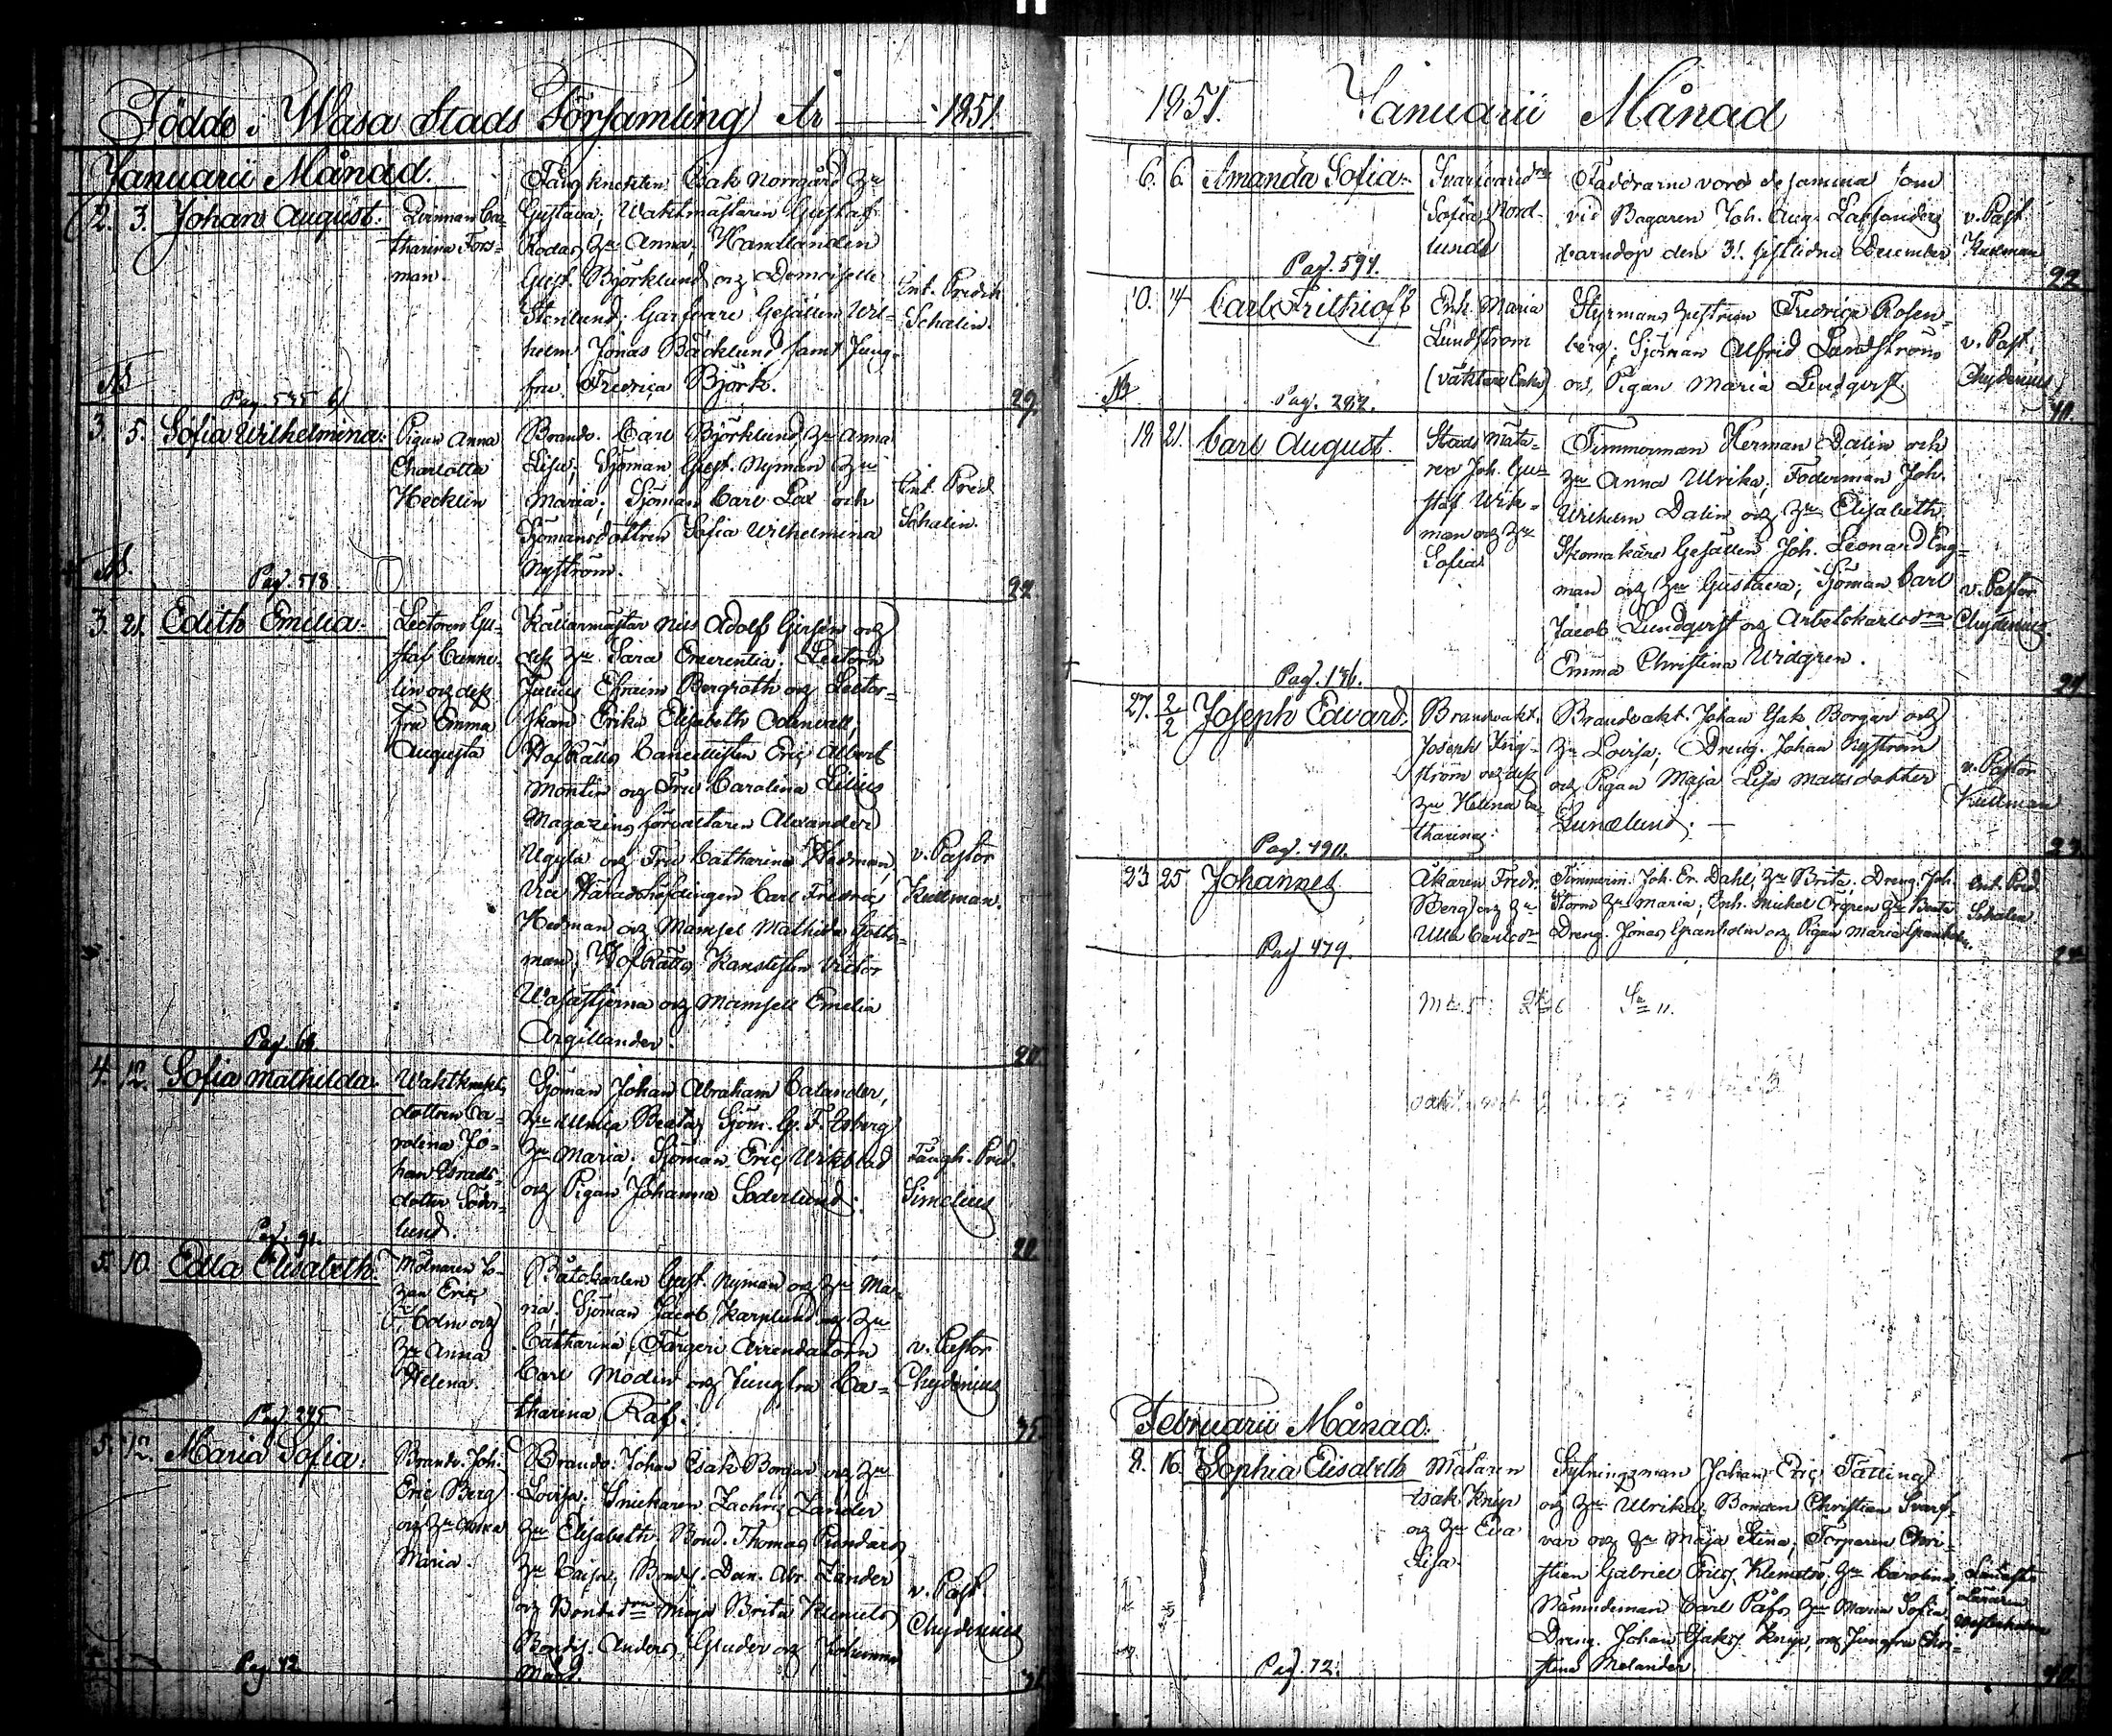 Födde i Wasa Stads Församling År 1851.
Januarii Månad.
2. 3. Johan August.
Qvinnan Ca-
tharina Fors-
man.
Fångknekten Isak Norrgård Hu
Gustava; Waktmästaren Gustaf
Rodas Hu Anna, Handlanden
Gust. Björklund och Demoiselle
Stenlund; Garfvare Gesällen Wil-
helm Jonas Bäcklund samt Jung-
fru Fredrica Björk.
Ent. Predik
Schalin.
Pag. 535
29.
3. 5. Sofia Wilhelmina.
Pigan Anna
Charlotta
Hecklin
Brandv. Carl Björklund, Hu Anna
Lisa; Sjöman Gust. Nyman Hu
Maria; Sjöman Carl Lax och
Sjömansdottren Sofia Wilhelmina
Nyström.
Ent. Pred
Schalin.
Pag. 518
22.
3. 21. Edith Emilia.
Lectoren Gu-
staf
och dess
Fru Emma
Augusta
Källarmästar Nils Adolf Girsén och
dess Hu Sara Emerentia; Lectorn
Julius Efraim Bergroth och Lector-
skan Erika Elisabeth Odenvall;
HofRätts Cancellisten Eric Albert
Montin och Fru Carolina Lilius
Magazins förvaltaren Alexander
Uggla och Fru Catharina Hedman,
Vice Häradshöfdingen Carl Fredric
Hedman och Mamsel Mathilda
man; HofRätts Kanslisten Victor
Wasastjerna och Mamsell Emelia
Argillander.
v. Pastor
Kullman.
Pag.
4. 12. Sofia Mathilda.
Waktknekts
dottren Ca-
rolina Jo-
han
dotter Söder-
lund.
Sjöman Johan Abraham Calander,
Hu Ulrica Beata; Sjöm. G. F. Åberg
Hu Maria; Sjöman Eric Wikblad
och Pigan Johanna Söderlund.
Fängh. Pred.
Simelius
Pag. 91.
5. 10. Edla Elisabeth.
Mölnaren Jo-
han Eric
Holm och
Hu Anna
Helena.
Båtskarlen Gust. Nyman och Hu Ma-
ria; Sjöman Jacob Karplund och Hu
Catharina; Färgeri Arrendatorn
Carl Modin och Jungfru Ca-
tharina Räf.
v. Pastor
Chydenius
Pag. 245
35.
5. 12. Maria Sofia.
Brandv. Joh.
Eric Berg
och Hu Anna
Maria.
Brandv. Johan Isak Borgar och Hu
Lovisa; Snickaren Zachris Zander
Hu Elisabeth; Bond. Thomas Pundars
Hu Caisa; Bondes. Dan. Abr. Zander
och Bondedn Maja Brita Klemets
Bondes. Anders Gluder och Johanna
v. Past.
Chydenius
Pag. 42
1851. Januarii Månad
6. 6. Amanda Sofia.
Sofia Nord-
lund
Faddrarne voro de samma som
vid Bagaren Joh. Aug. Lassanders
barndop den 31. sistlidne December
v. Past
Kullman
Pag. 594.
22
10. 14 Carl Frithioff
Enk. Maria
Lundström
(väktare Enka)
Styrmans hustrun Fredrica Rosen-
berg; Sjöman Alfrid Landström
och Pigan Maria Lindqvist.
v. Past.
Chydenius
Pag. 282.
40.
19. 21. Carl August.
Stads Mäta-
ren Joh. Gu-
staf Wik-
man och Hu
Sofia
Timmerman Herman Dalin och
Hu Anna Ulrika; Foderman Joh.
Wilhelm Dalin och Hu Elisabeth;
Skomakare Gesällen Joh. Leonard Eng-
man och Hu Gustava; Sjöman Carl
Jacob Lundqvist och Arbetskarlsdrn
Emma Christina Widgren.
v. Pastor
Chydenius.
Pag. 136.
27. 2/2 Joseph Edvard.
Brandvakt.
Joseph
ström och dess
Hu Helena Ca-
tharina.
Brandvakt. Johan Isak Borgar och
Hu Lovisa; Dreng. Johan Nyström
och Pigan Maja Lisa Mattsdotter
Lundlund.
v. Pastor
Kullman
Pag. 190.
23.
23 25 Johannes
Åkaren Fredr.
Berg och Hu
Ulla Carlsdr
Timmerm. Joh. Er. Dahl, Hu Brita; Dreng. Joh.
Storm Hu Maria; Enh. Mickel Orgren Hu Beata
Dreng. Jonas Granholm och Pigan Maria Granholm.
Ent. Pred.
Schalin
Pag. 479.
Februarii Månad.
8. 16. Sophia Elisabeth
Målaren
Isak Knip
och Hu Eva
Lisa.
Fylningsman Johan Eric Tallina
och Hu Ulrika; Bonden Christian Svarf-
var och Hu Maja Stina; Torparen Chri-
stian Gabriel Erics. Klemets Hu Carolina;
Nämndeman Carl Påfs Hu Maria Sofia
Dreng. Johan Isaks. Knip, och Jungfru Chri-
stina Melander.
Läraren
Westerholm
Pag. 12.